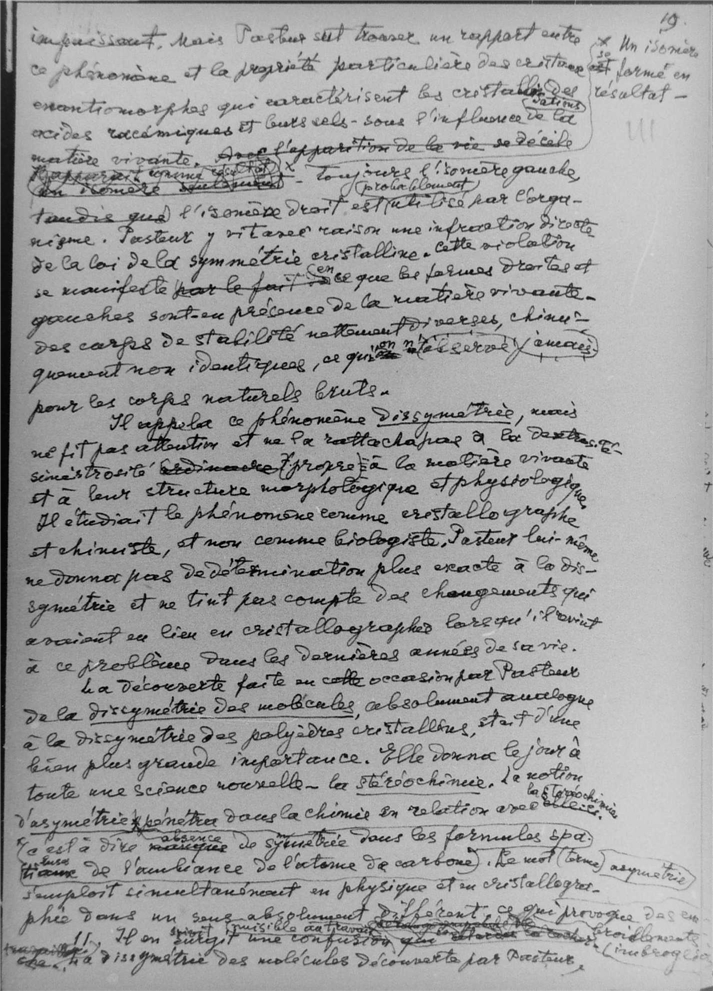 19.
impuissant. Mais Pasteur sut trouver un rapport entre
ce phénomène et la propriété particulière des cristaux
enantiomorphes qui caractérisent les cristallisations des
acides racémiques et leurs sels - sous l'influence de la
matière vivante. Avec l'apparition de la vie se décèle
× Un isomère
se est formé en
résultat -
III
apparait comme résultat
un isomère seulement × - toujours l'isomère gauche
tandis que l'isomère droit est (probablement) utilisé par l'orga-
nisme. Pasteur y vit avec raison une infraction directe
de la loi de la symmétrie cristalline. Cette violation
se manifeste par le fait en ce que les formes droites et
gauches sont en présence de la matière vivante -
des corps de stabilité nettement diverses, chimi-
quement non identiques, ce qu'on n'observe jamais
pour les corps naturels bruts.
Il appela ce phénomène dissymétrie, mais
ne fit pas attention et ne la rattacha pas à la dextrosité-
sinistrosité ordinaire (propre) à la matière vivante
et à leur structure morphologique et physiologique.
Il étudiait le phénomène comme cristallographe
et chimiste, et non comme biologiste. Pasteur lui-même
ne donna pas de détermination plus exacte à la dis-
symétrie et ne tint pas compte des changements qui
avaient eu lieu en cristallographie lorsqu'il revint
à ce problème dans les dernières années de sa vie.
La découverte faite en cette occasion par Pasteur
de la dissymétrie des molécules, absolument analogue
à la dissymétrie des polyèdres cristallins, était d'une
bien plus grande importance. Elle donna le jour à
toute une science nouvelle - la stéréochimie. La notion
d'asymétrie pénétra dans la chimie en relation avec elle. la stéréochimie
(c'est à dire manque absence de symétrie dans les formules spa-
tiales de l'ambiance de l'atome de carbone). Le mot (terme) asymétrie
s'emploit simultanément en physique et en cristallogra-
phie dans un sens absolument différent, ce qui provoque des em-
brouillements (imbroglio
11. Il en surgit suivit une confusion nuisible au travail
La dissymétrie des molécules découverte par Pasteur,